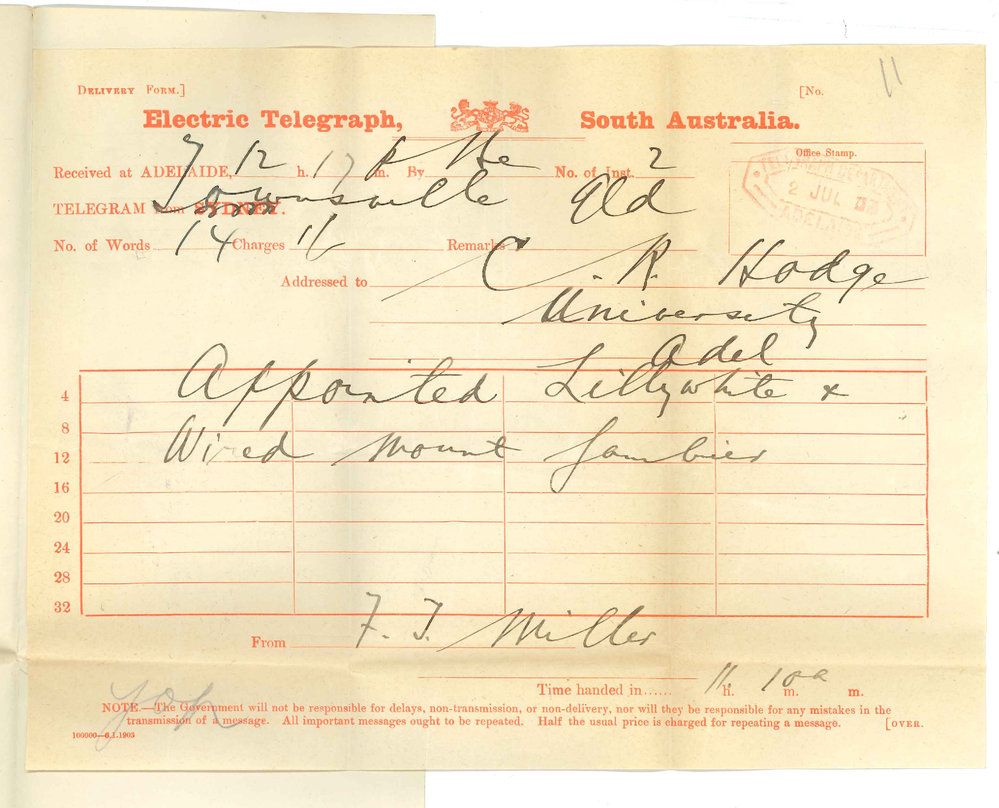 DELIVERY FORM.] [No. 11
Electric Telegraph, South Australia.
Office Stamp.
Received at ADELAIDE, 12 h. 17 m. By No. of Inst. 2
TELEGRAM from SYDNEY. Townsville Qld
2 JUL
ADELAIDE
No. of Words 14 Charges 1/6 Remarks
Addressed to C. R. Hodge
University
Adel
4 Appointed Lillywhite &
8
12 Wired Mount Gambier
16
20
24
28
32
From F. J. Miller
Time handed in...... 11 h. 10 a m. m.
NOTE.—The Government will not be responsible for delays, non-transmission, or non-delivery, nor will they be responsible for any mistakes in the
transmission of a message. All important messages ought to be repeated. Half the usual price is charged for repeating a message. [OVER.
100000—6.1.1903